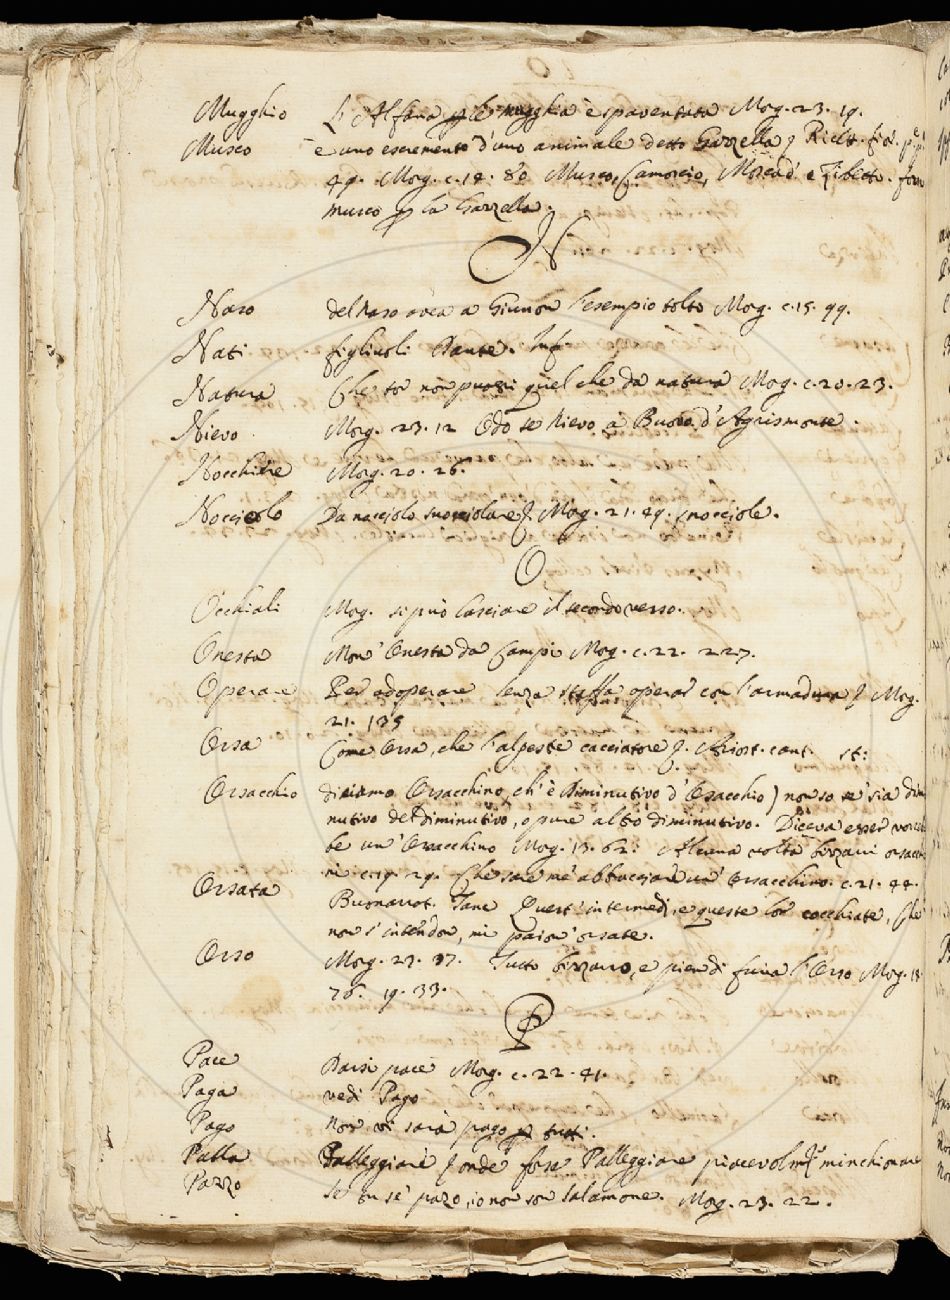 Mugghio L'Alfana p̱ le mugghia è spaventata Morg. 23. 19.
Musco è uno escremento d'uno animale detto Gazzella Ricett. fior.
49. Morg. c. 14. 80 Musco, Moscad. e Zibetto.
musco p̱ la Gazzella.
N
Naso del naso avea a Giunon l'esempio tolto Morg. c. 15. 99.
Nati figliuoli Dante. Inf.
Natura Che tor non puossi quel che da natura Morg. c. 20. 23.
Nievo Morg. 23. 12 Odo se Nievo a Buovo d'Agrismonte.
Nocchiere Morg. 20. 26.
Nocciolo Da nocciolo snocciolare Morg. 21. 49. snocciole.
O
Occhiali Morg. si può lasciare il secondo verso.
Onesta Mon' Onesta da Campi Morg. c. 22. 227.
Operare Per adoperare senza staffa operar con l'armadura Morg.
21. 135
Orsa Come Orsa, che l'alpestre cacciatore Ariost. cant. st:
Orsacchio diciamo Orsacchino, ch' è diminutivo d'Orsacchio) non so se sia dimi
nutivo del diminutivo, o pure altro diminutivo. Diceva esser
be un' Orsacchino Morg. 13. 62. Alcuna volta bizzarri orsacchi
ni c. 19. 29. Che sare' me' abbracciare un' Orsacchino. c. 21. 44.
Orsata Buonarrot. Tanc Quest' intermedi, e queste lor cocchiate, Che
non s'intendon, mi paion' orsate.
Orso Morg. 23. 37. Tutto bizzarro, e pien di furia l'Orso Morg. 18
76. 19. 33.
P
Pace Darsi pace Morg. c. 22. 41.
Paga vedi Pago
Pago non vi sarà pago p̱ tutti.
Palla Palleggiare onde forse Palleggiare piacevolm.te minchionare
Pazzo Se tu se' pazo, io non son Salamone. Morg. 23. 22.